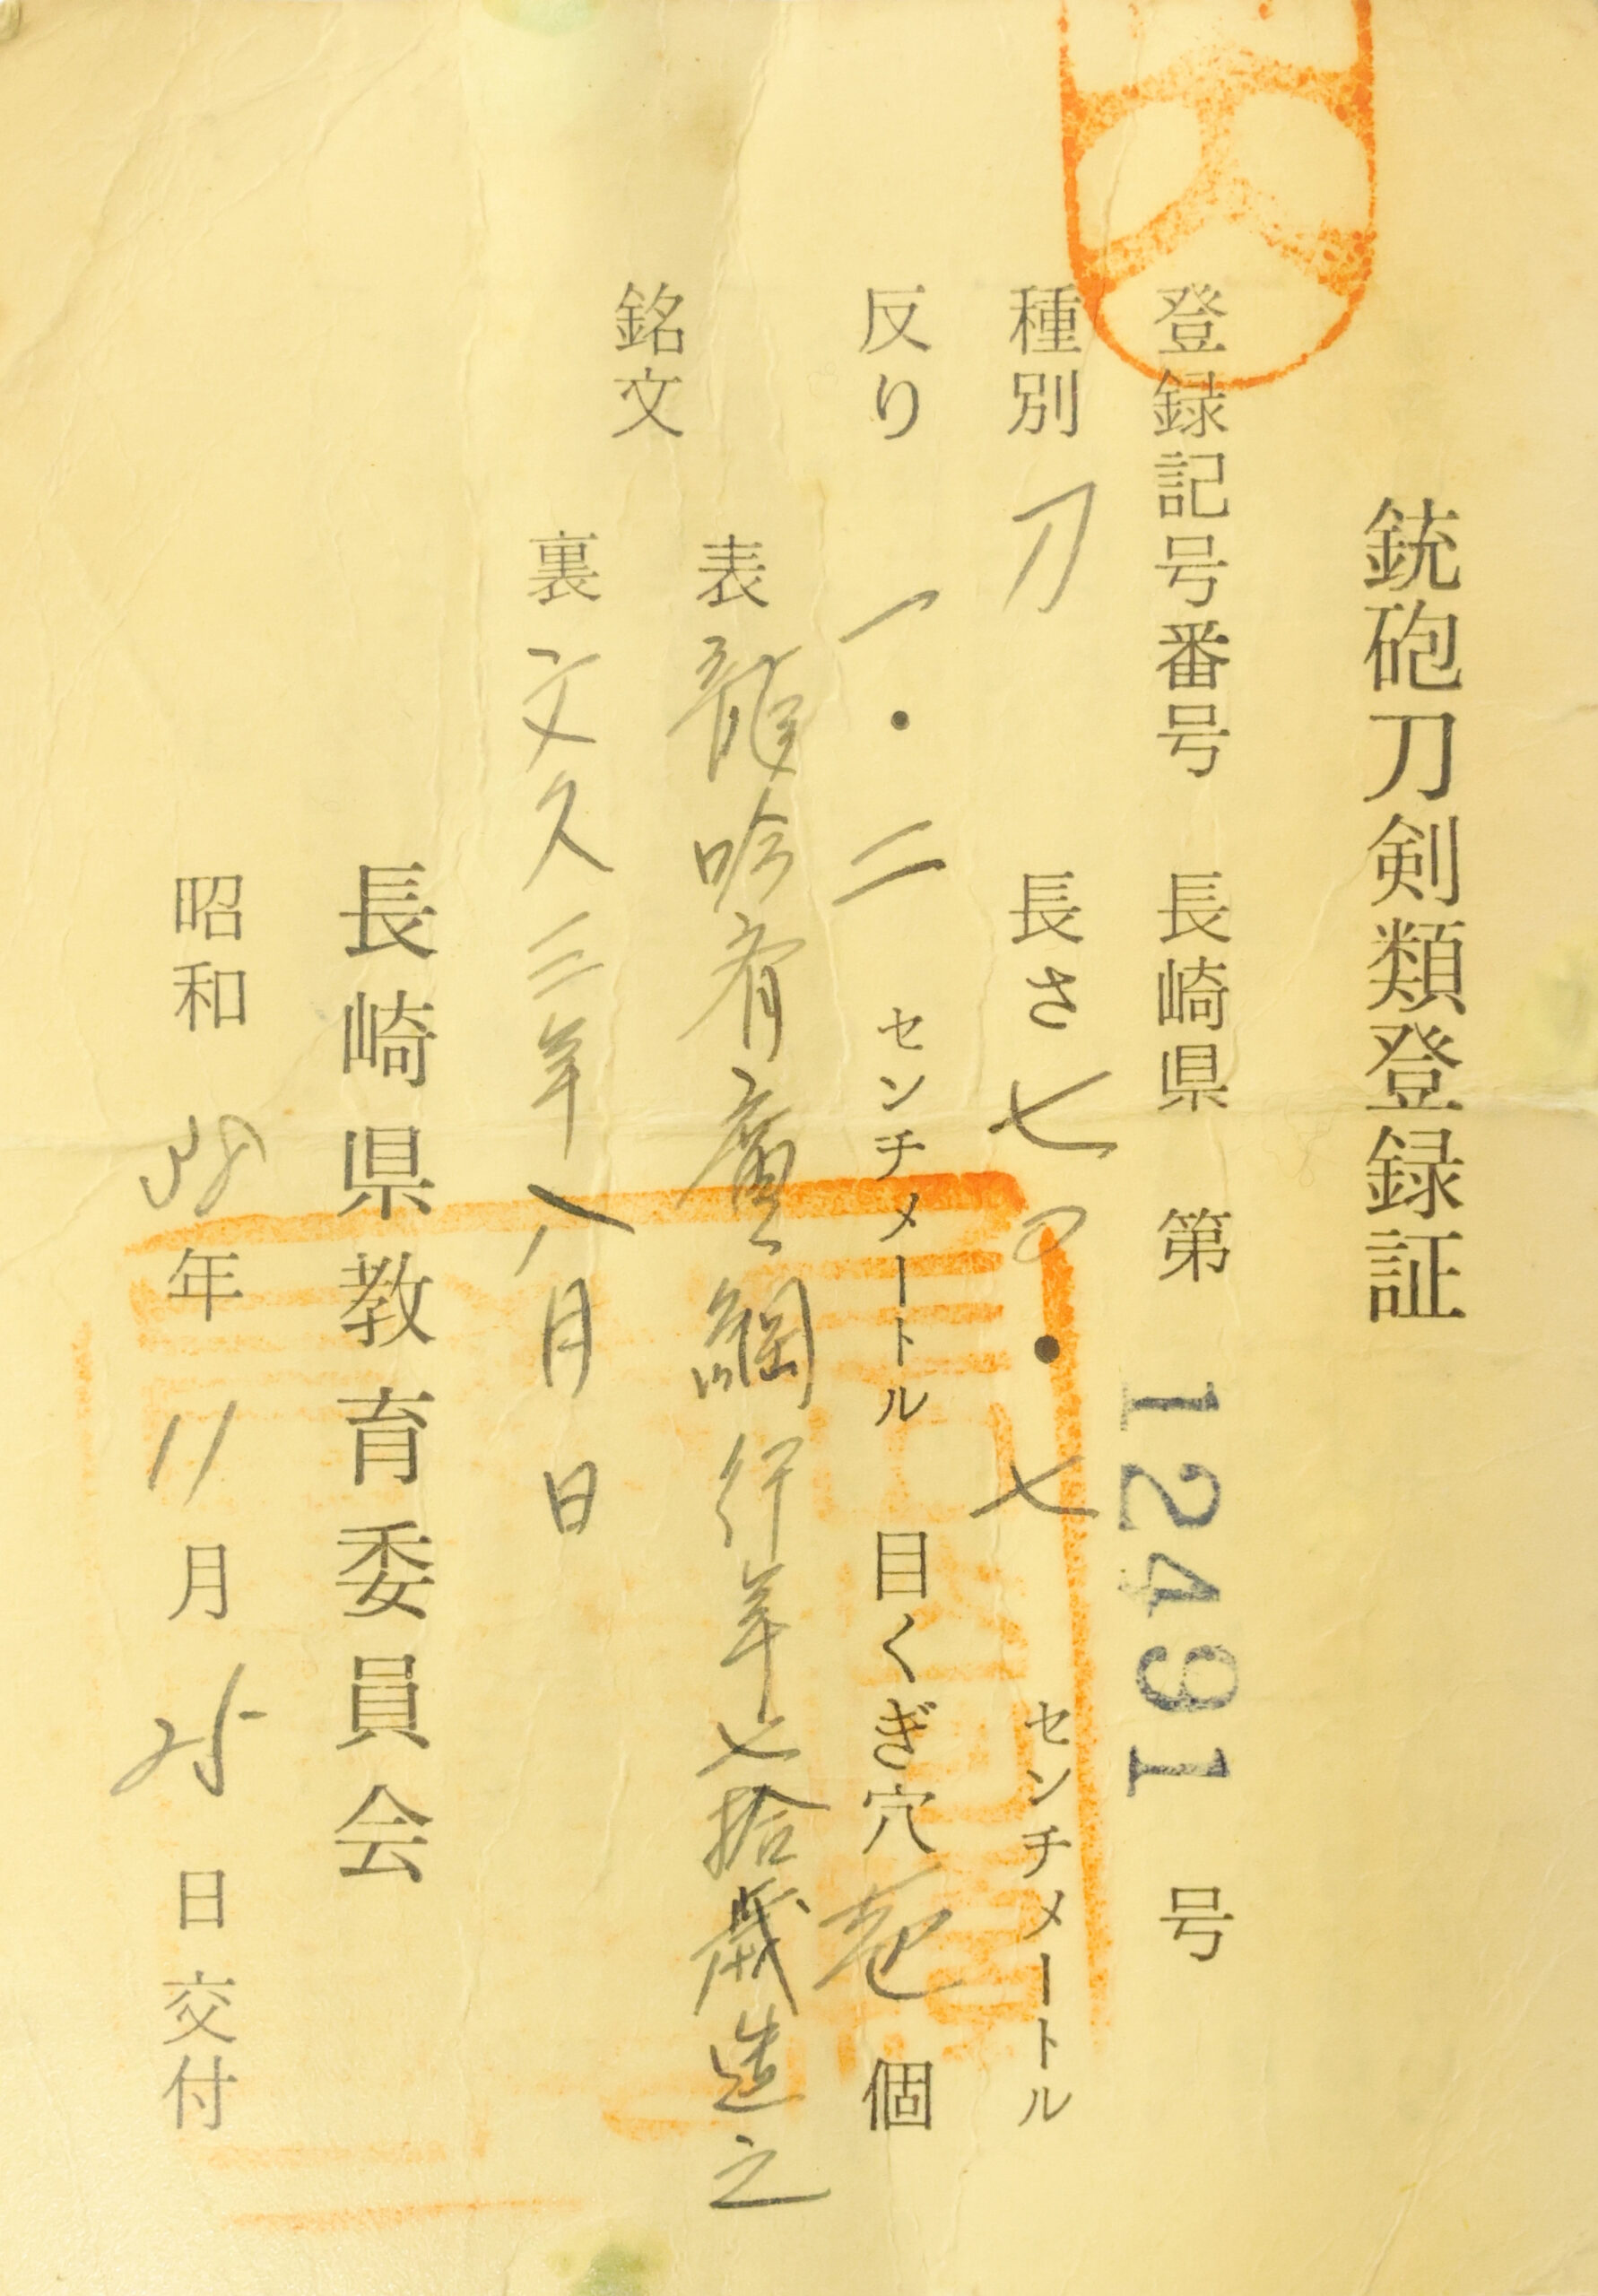 銃砲刀剣類登録証
登録記号番号 長崎県 第 12491 号
種別 刀 長さ 七〇・七 センチメートル
反り 一・二 センチメートル 目くぎ穴 壱 個
銘文
表 龍吟斉廣綱行年七拾歳造之
裏 文久三年八月日
長崎県教育委員会
昭和 38 年 11 月 25 日交付